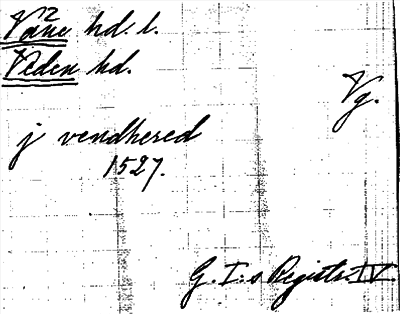 Vane hd. l.
Veden hd.
Vg.
j vendhered
1527.
G. I:s Registr. IV.